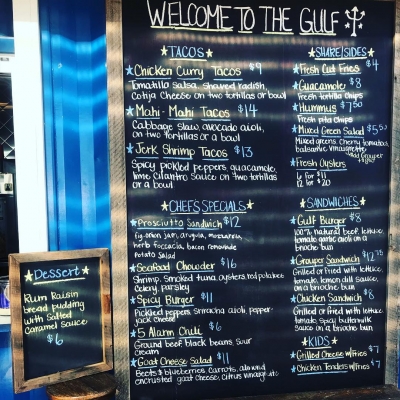 WELCOME TO THE GULF
TACOS
Chicken Curry Tacos $9
Tomatillo Salsa, shaved radish
Cotija Cheese on two tortillas or bowl
Mahi-Mahi Tacos $14
Cabbage slaw, avocado aioli,
on two tortillas or bowl
Jerk Shrimp Tacos $13
Spicy pickled peppers guacamole,
lime cilantro Sauce on two tortillas
or a bowl
CHEF'S SPECIALS
Prosciutto Sandwich $12
fig onion jam, arugula, mozzarella,
herb foccacia, bacon lemonade
Potato Salad
Seafood Chowder $16
Shrimp, Smoked tuna, oysters, red potatoes
Celery, parsley
Spicy Burger $11
Pickled peppers, Sriracha aioli, pepper-
jack cheese
5 Alarm Chili $6
Ground beef, black beans, Sour
cream
Goat Cheese Salad $11
Beets & blueberries, carrots, almond
encrusted goat cheese, citrus vinaigrette
SHARE/SIDES
Fresh Cut Fries $4
Guacamole $8
Fresh tortilla chips
Hummus $7.50
Fresh pita chips
Mixed Green Salad $5.50
Mixed greens, Cherry tomatoes,
balsamic vinaigrette
*add Grouper
Fresh Oysters
6 for $11
12 for $20
SANDWICHES
Gulf Burger $8
100% natural beef, lettuce,
tomato, garlic aioli on a
brioche bun
Grouper Sandwich $12.75
Grilled or fried with lettuce,
tomato, lemon dill sauce,
on a brioche bun
Chicken Sandwich $8
Grilled or fried with lettuce,
tomato, Spicy buttermilk
Sauce on a brioche bun
KIDS
Grilled Cheese w/fries $7
Chicken Tenders w/fries $7
Dessert
Rum Raisin
bread pudding
with Salted
Caramel Sauce
$6